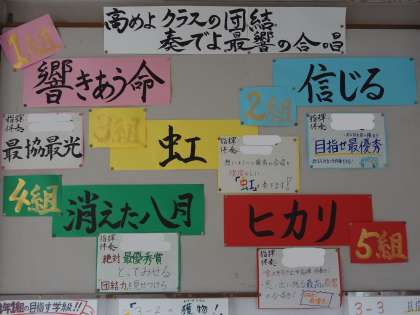 高めよ クラスの団結
奏でよ 最響の合唱
1組
響きあう命
指揮
伴奏
最協最光
2組
信じる
指揮
伴奏
目指せ最優秀
3組
虹
指揮
伴奏
「虹」
4組
消えた八月
指揮
伴奏
絶対 最優秀賞
とってみせる
団結力を見せつけろ
ヒカリ
5組
指揮
伴奏
3-2
獲物!
3-3